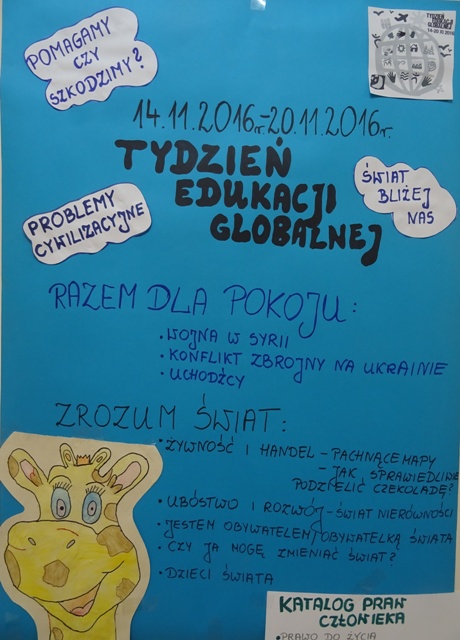 POMAGAMY
CZY
SZKODZIMY?
TYDZIEŃ
EDUKACJI
GLOBALNEJ
14-20 XI 2016
14.11.2016r.-20.11.2016r.
TYDZIEŃ
EDUKACJI
GLOBALNEJ
ŚWIAT
BLIŻEJ
NAS
PROBLEMY
CYWILIZACYJNE
RAZEM DLA POKOJU:
• WOJNA W SYRII
• KONFLIKT ZBROJNY NA UKRAINIE
• UCHODŹCY
ZROZUM ŚWIAT:
• ŻYWNOŚĆ I HANDEL - PACHNĄCE MAPY
- JAK SPRAWIEDLIWIE
PODZIELIĆ CZEKOLADĘ?
• UBÓSTWO I ROZWÓJ - ŚWIAT NIERÓWNOŚCI
• JESTEM OBYWATELEM/OBYWATELKĄ ŚWIATA
• CZY JA MOGĘ ZMIENIAĆ ŚWIAT?
• DZIECI ŚWIATA
KATALOG PRAW
CZŁOWIEKA
• PRAWO DO ŻYCIA